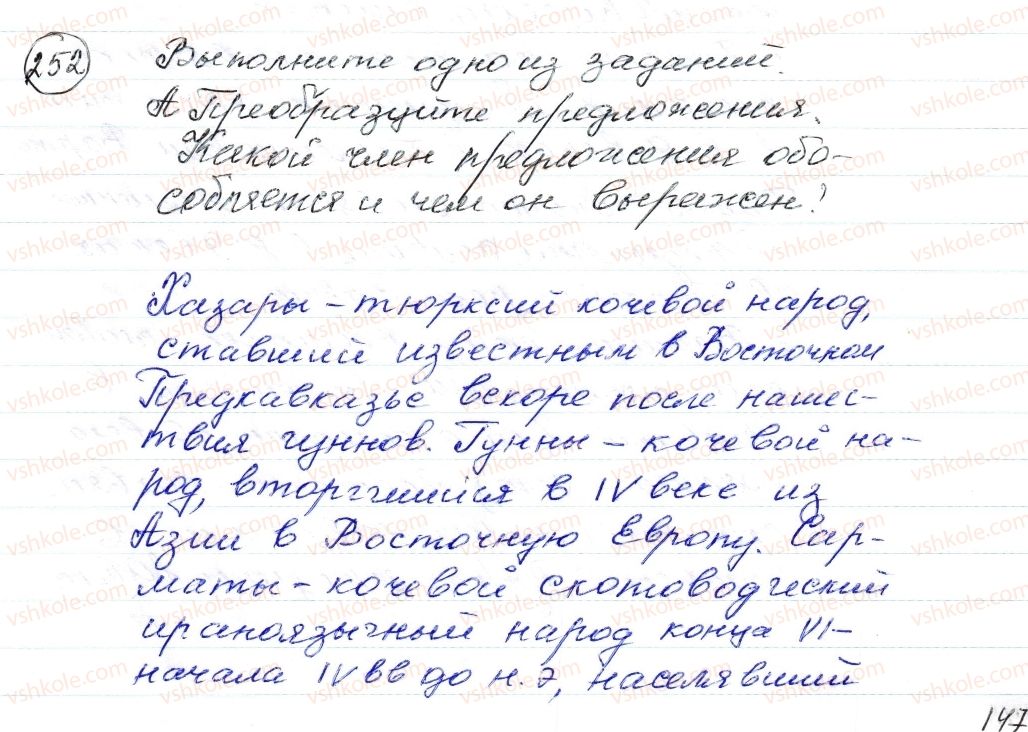 252 Выполните одно из заданий.
А Преобразуйте предложения.
Какой член предложения обо-
собляется и чем он выражен?
Хазары – тюрксий кочевой народ,
ставший известным в Восточном
Предкавказье вскоре после нашес-
твия гуннов. Гунны – кочевой на-
род, вторгшийся в IV веке из
Азии в Восточную Европу. Сар-
маты – кочевой скотоводческий
ираноязычный народ конца VI-
начала IV вв до н. э, населявший
147